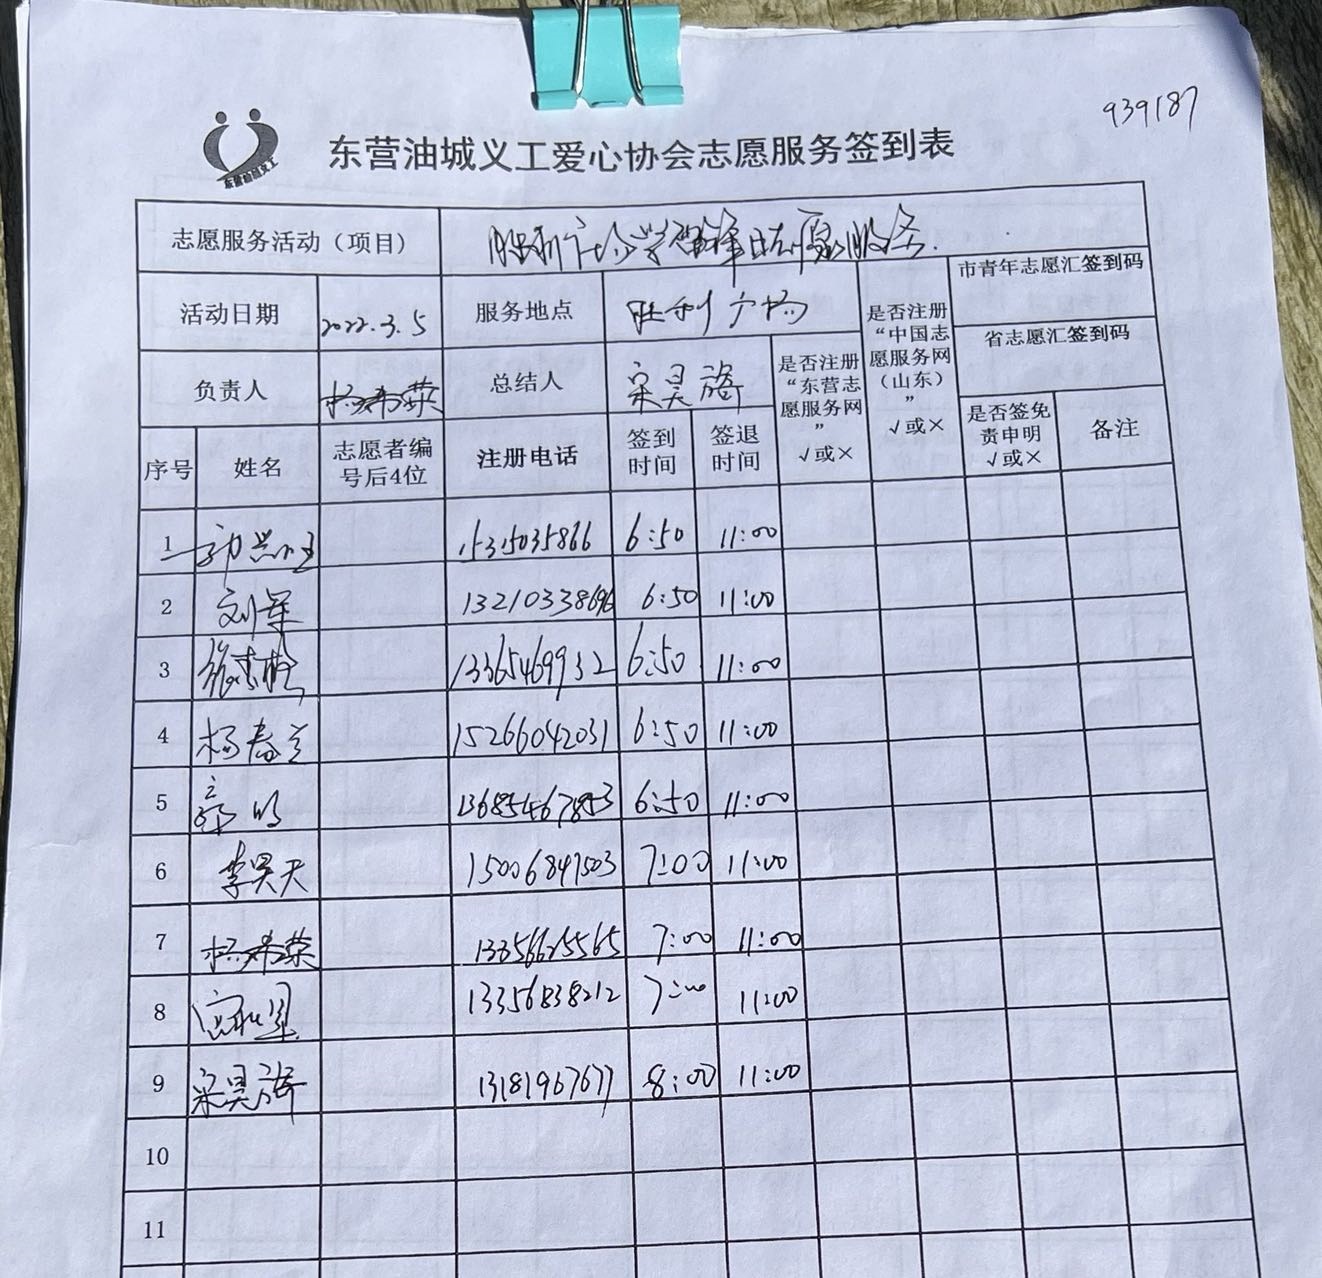 939187
东营油城义工
东营油城义工爱心协会志愿服务签到表
志愿服务活动（项目） 胜利广场学雷锋志愿服务.
活动日期 2022.3.5 服务地点 胜利广场
是否注册“东营志愿服务网” √或×
是否注册“中国志愿服务网（山东）” √或×
市青年志愿汇签到码
省志愿汇签到码
负责人 杨希荣 总结人 宋昊
序号 姓名 志愿者编号后4位 注册电话 签到时间 签退时间 是否签免责申明 √或× 备注
1 6:50 11:00
2 刘军 13210338696 6:50 11:00
3 13365469932 6:50 11:00
4 杨春兰 15266042031 6:50 11:00
5 6:50 11:00
6 李昊天 15006847503 7:00 11:00
7 杨希荣 13356625565 7:00 11:00
8 13356838212 7:00 11:00
9 宋昊 13181967677 8:00 11:00
10
11